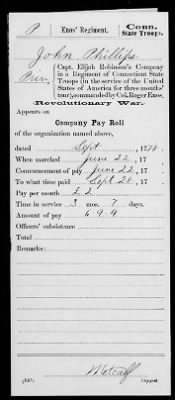 P | Enos' Regiment. | Conn. State Troops.
John Phillips
Priv, { Capt. Elijah Robinson's Company
in a Regiment of Connecticut State
Troops (in the service of the United
States of America for three months'
tour), commanded by Col. Roger Enos.
Revolutionary War.
Appears on
Company Pay Roll
of the organization named above,
dated Sept , 1778.
When marched June 22 , 17
Commencement of pay June 22 , 17
To what time paid Sept 28 , 17
Pay per month £2
Time in service 3 mos. 7 days.
Amount of pay 6 9 9
Officers' subsistence
Total amount
Remarks:
Metcalf
(545) Copyist.